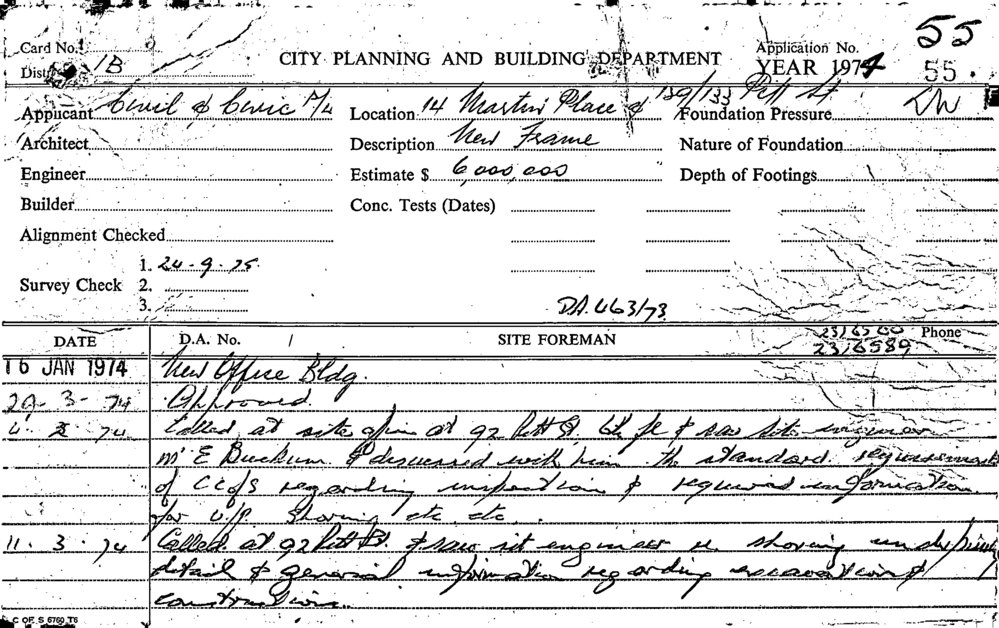 Card No. CITY PLANNING AND BUILDING DEPARTMENT Application No. 55
Dist. 1B YEAR 1974 55.
Applicant Civil & Civic P/L Location 14 Martin Place & 129/133 Pitt St Foundation Pressure
Architect Description New Frame Nature of Foundation
Engineer Estimate $ 6,000,000 Depth of Footings
Builder Conc. Tests (Dates)
Alignment Checked
Survey Check 1. 24-9-75
2.
3.
DA. 463/73
DATE D.A. No. / SITE FOREMAN 2316589 Phone
16 JAN 1974 New Office Bldg.
29-3-74 Approved.
74 Called at site office at 92 Pitt St, 6th fl & saw site engineer
Mr E Buckum & discussed with him the standard requirements
of CCofS regarding inspection & required information
for U.P. Shoring etc etc.
11.3.74 Called at 92 Pitt St. & saw sit engineer re shoring underpinning
detail & general information regarding excavation &
construction.
C OF S 6760 T6